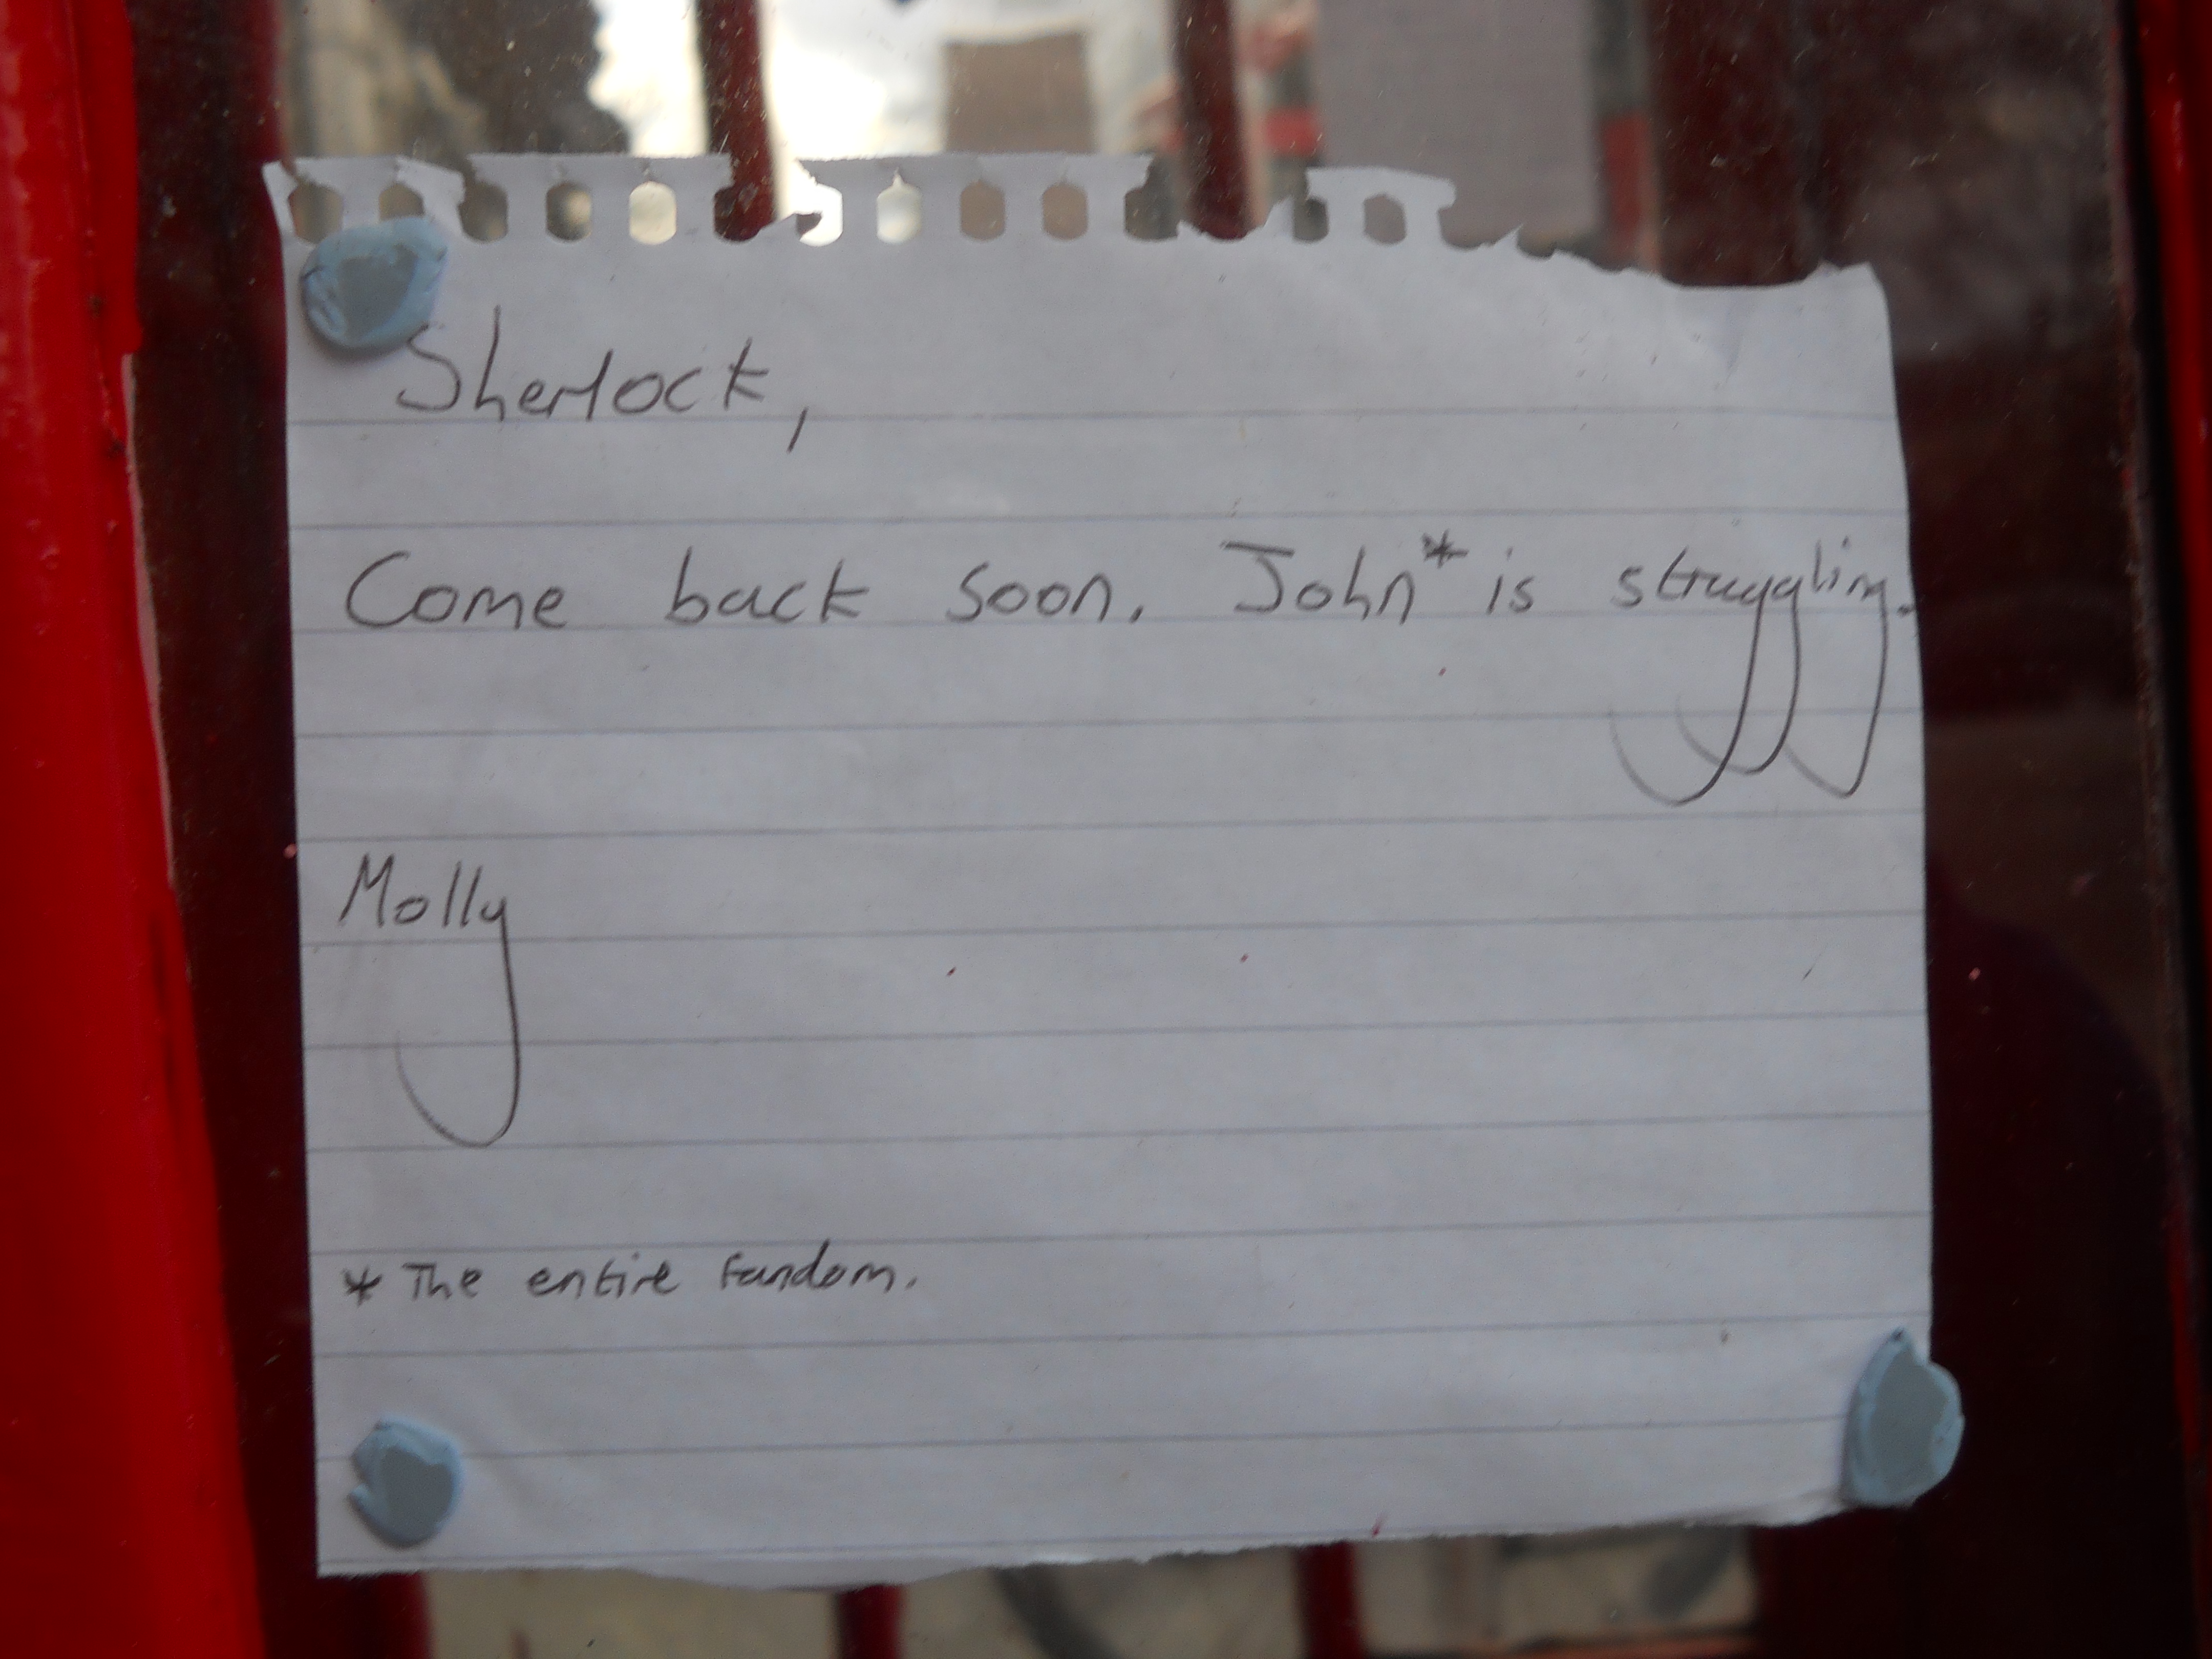 Sherlock,
Come back soon. John* is struggling.
Molly
* The entire fandom.